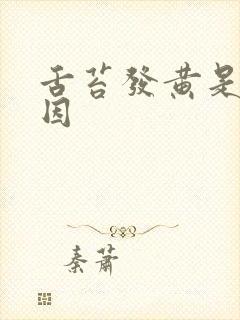 舌苔發黃是
因
秦蕭